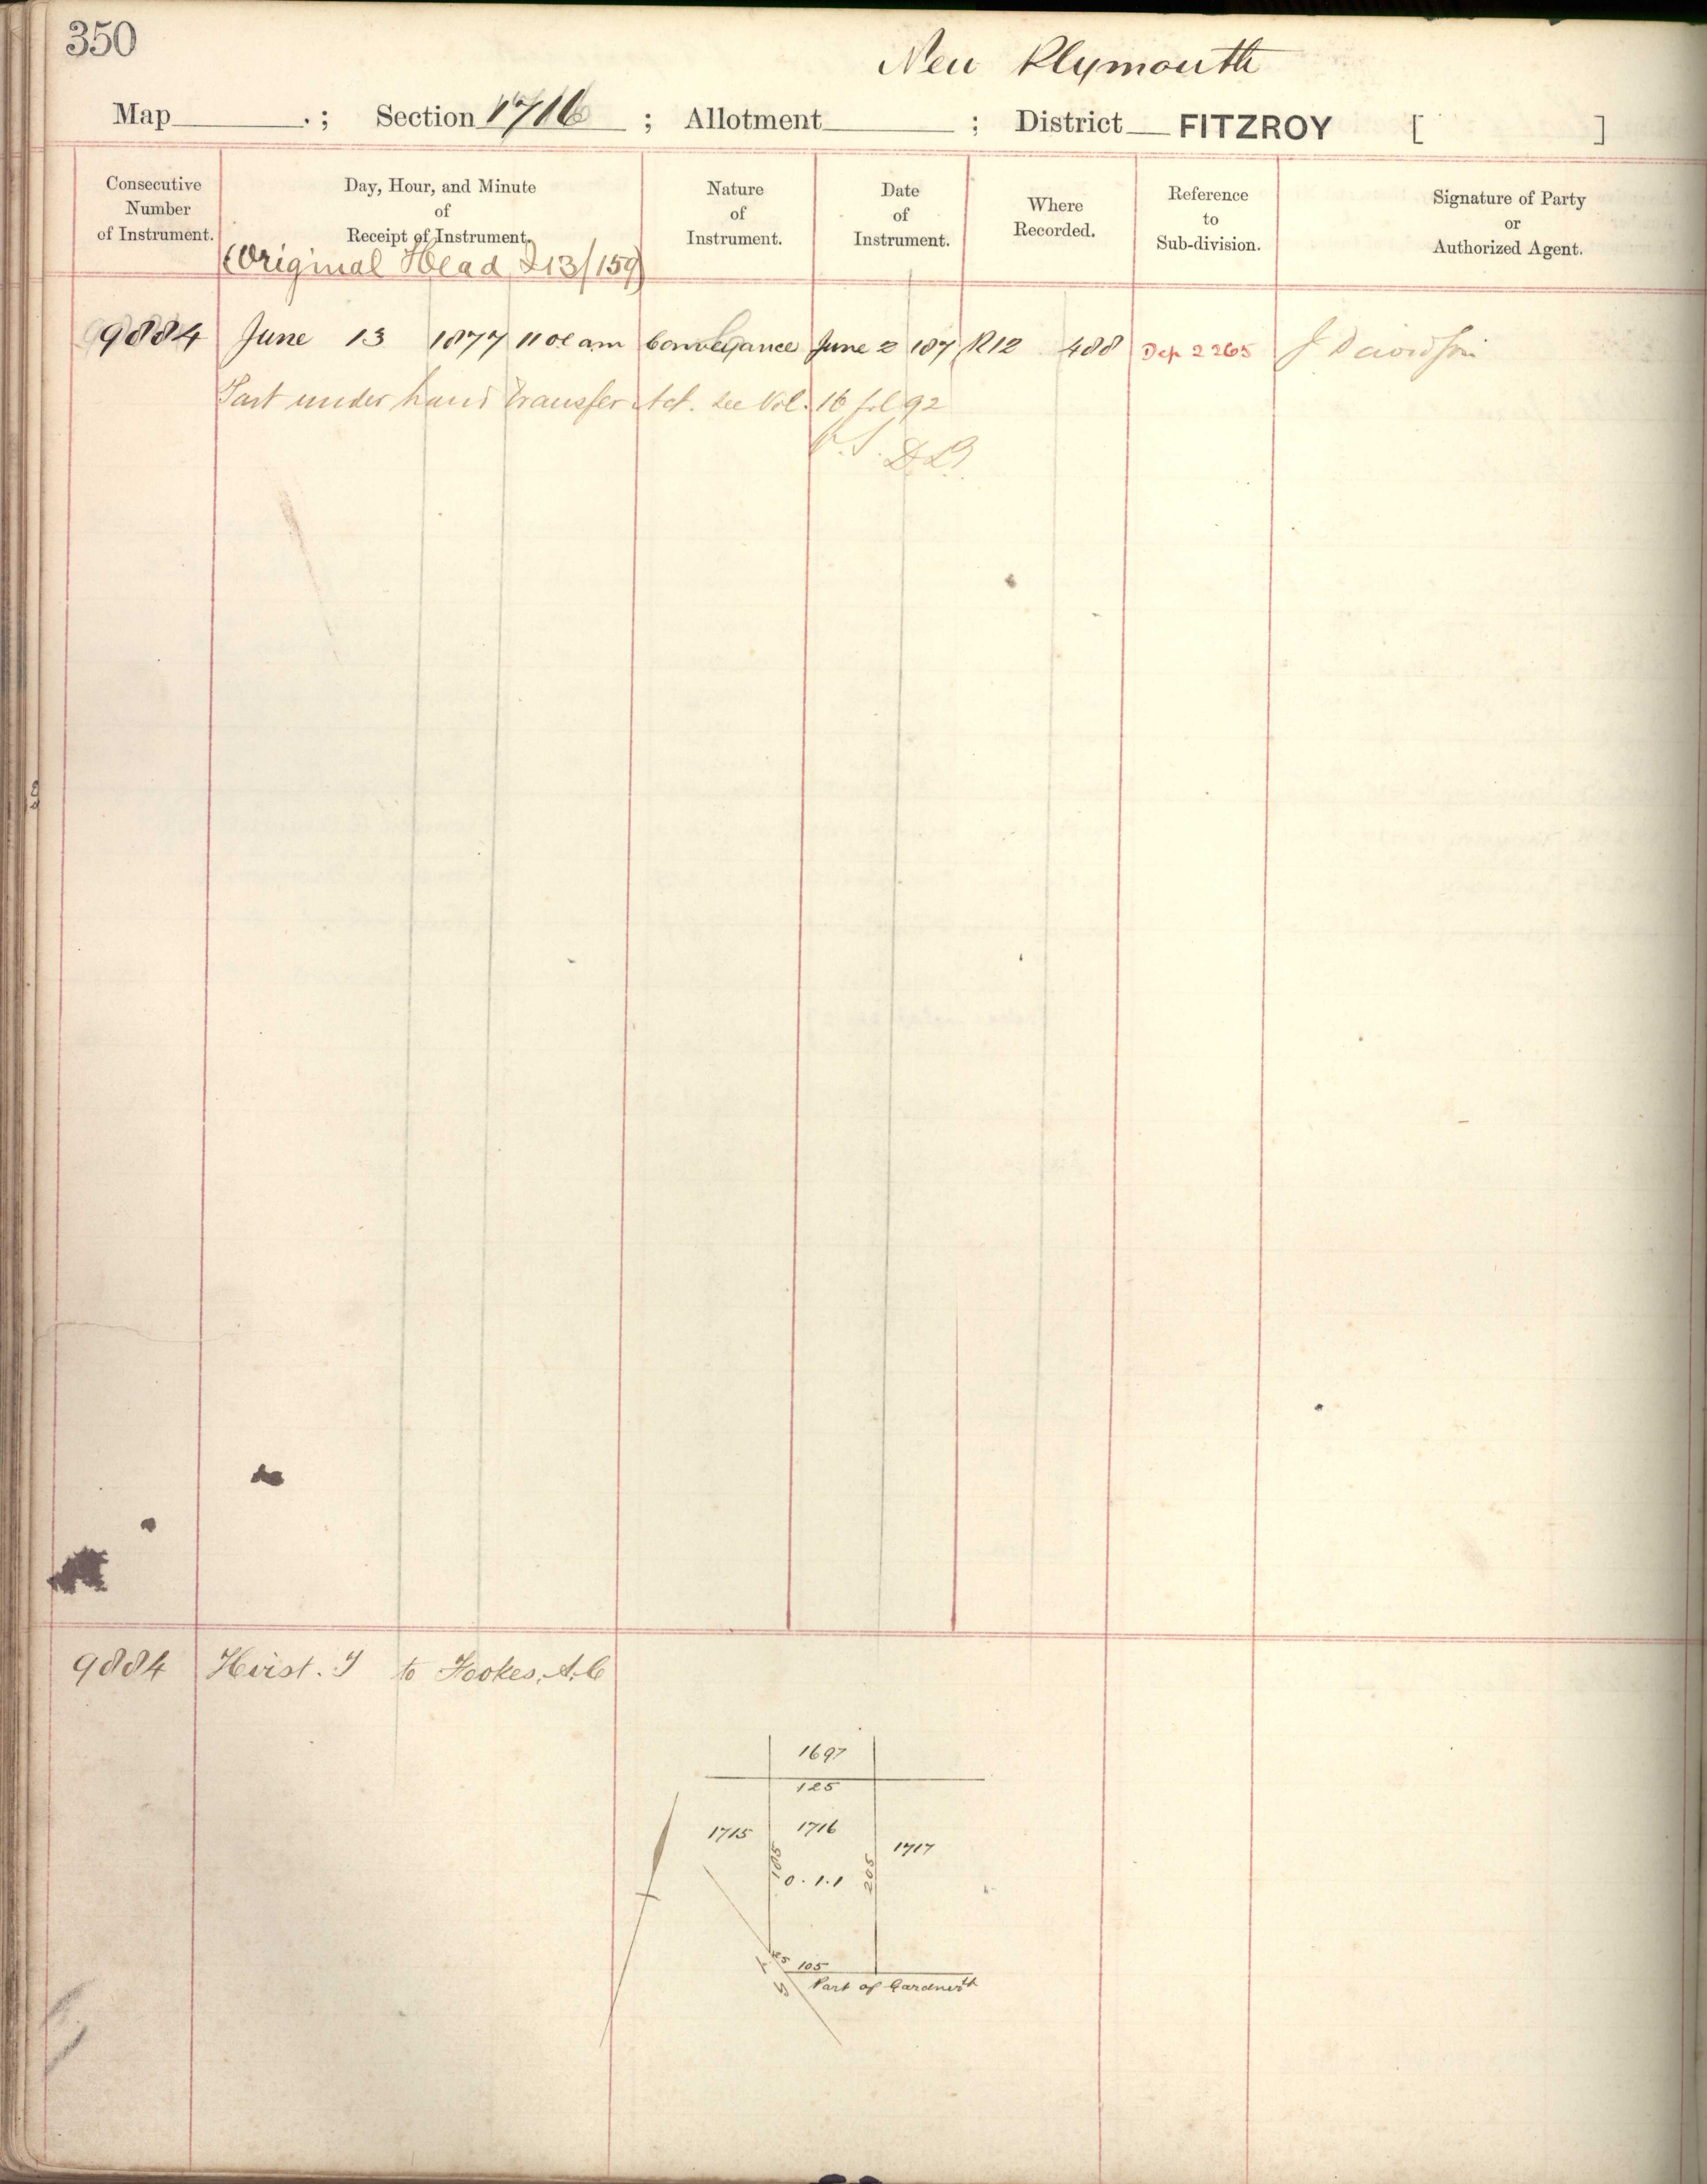 350
New Plymouth
Map ; Section 1716 ; Allotment ; District FITZROY [ ]
Consecutive Number of Instrument.
Day, Hour, and Minute of Receipt of Instrument.
Nature of Instrument.
Date of Instrument.
Where Recorded.
Reference to Sub-division.
Signature of Party or Authorized Agent.
(Original Head I 13/159)
9884 June 13 1877 11 oc am Conveyance June 2 187 R12 488 Dep 2265 J Davidson
Part under Land Transfer Act. See Vol. 16 fol 92
D.L.R.
9884 Hirst. T to Fookes, A.C
1697
125
1715 1716 1717
185 205
0. 1. 1
25 105
Part of Gardner St